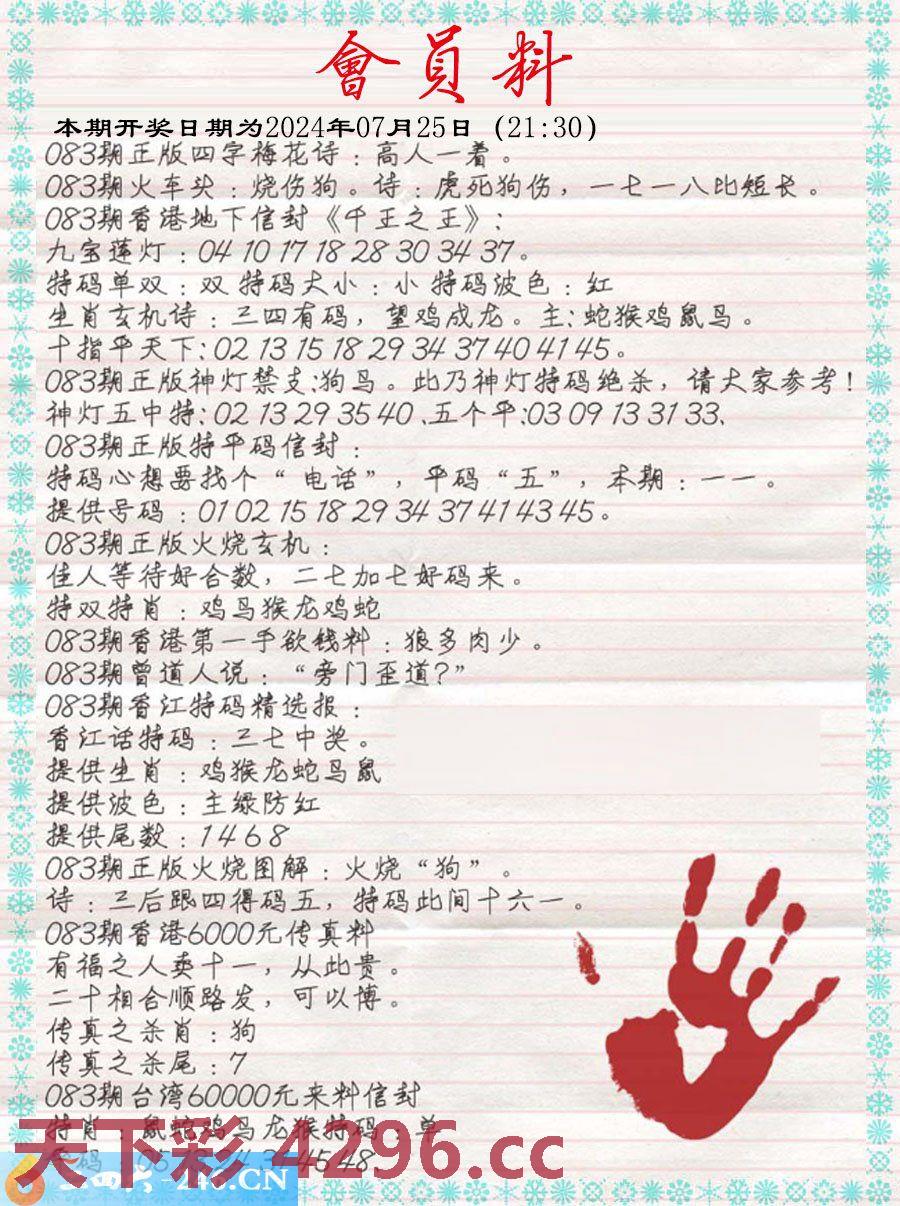 會員料
本期开奖日期为2024年07月25日（21:30）
083期正版四字梅花诗：高人一着。
083期火车头：烧伤狗。诗：虎死狗伤，一七一八比短长。
083期香港地下信封《千王之王》：
九宝莲灯：04 10 17 18 28 30 34 37。
特码单双：双 特码大小：小 特码波色：红
生肖玄机诗：三四有码，望鸡成龙。主：蛇猴鸡鼠马。
十指平天下：02 13 15 18 29 34 37 40 41 45。
083期正版神灯禁支：狗马。此乃神灯特码绝杀，请大家参考！
神灯五中特：02 13 29 35 40、五个平：03 09 13 31 33、
083期正版特平码信封：
特码心想要找个“电话”，平码“五”，本期：一一。
提供号码：01 02 15 18 29 34 37 41 43 45。
083期正版火烧玄机：
佳人等待好合数，二七加七好码来。
特双特肖：鸡马猴龙鸡蛇
083期香港第一手欲钱料：狼多肉少。
083期曾道人说：“旁门歪道？”
083期香江特码精选报：
香江话特码：三七中奖。
提供生肖：鸡猴龙蛇马鼠
提供波色：主绿防红
提供尾数：1 4 6 8
083期正版火烧图解：火烧“狗”。
诗：三后跟四得码五，特码此间十六一。
083期香港6000元传真料
有福之人卖十一，从此贵。
二十相合顺路发，可以博。
传真之杀肖：狗
传真之杀尾：7
083期台湾60000元来料信封
特肖：鼠蛇鸡马龙猴特码：单
天下彩 4296.cc
246.CN